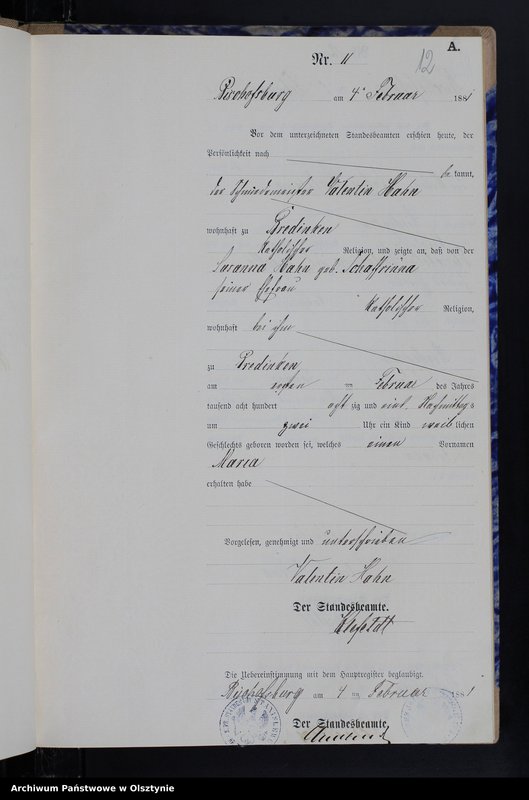 A.
12
Nr. 11
Bischofsburg am 4ᵗ Februar 1881
Vor dem unterzeichneten Standesbeamten erschien heute, der
Persönlichkeit nach
be kannt,
der Schmiedemeister Valentin Hahn
wohnhaft zu Bredinken
katholischer Religion, und zeigte an, daß von der
Susanna Hahn geb. Schaffrinna
seiner Ehefrau
katholischer Religion,
wohnhaft bei ihm
zu Bredinken,
am ersten ten Februar des Jahres
tausend acht hundert acht zig und eins, Nachmittags
um zwei Uhr ein Kind weib lichen
Geschlechts geboren worden sei, welches einen Vornamen
Maria
erhalten habe
Vorgelesen, genehmigt und unterschrieben
Valentin Hahn
Der Standesbeamte.
Die Uebereinstimmung mit dem Hauptregister beglaubigt.
Bischofsburg am 4 ten Februar 1881
Der Standesbeamte.
Archiwum Państwowe w Olsztynie